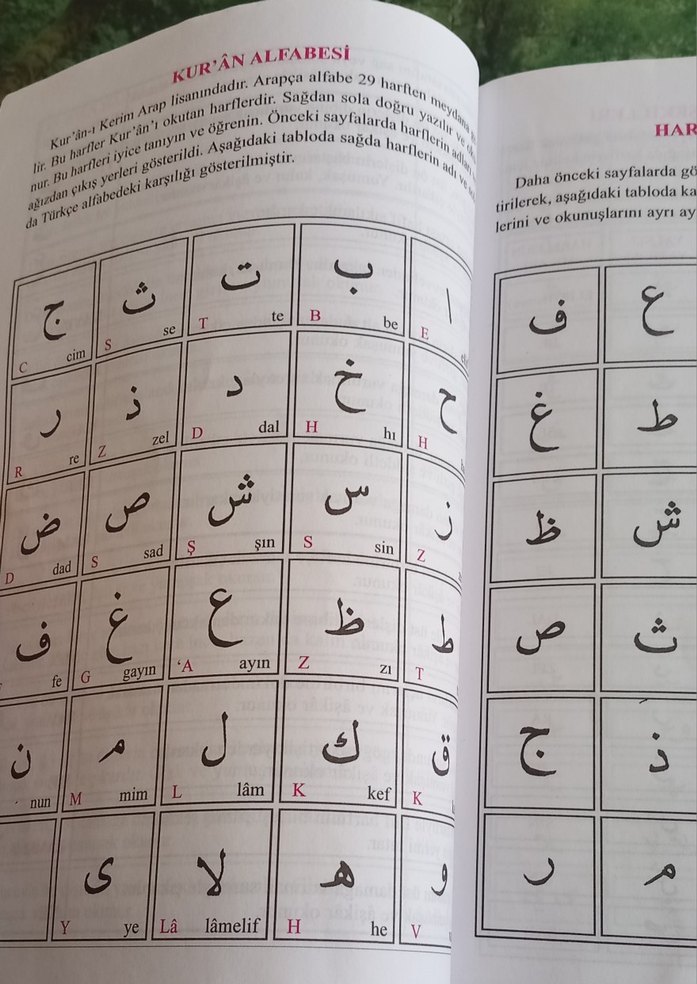 KUR'ÂN ALFABESİ
Kur'ân-ı Kerim Arap lisanındadır. Arapça alfabe 29 harften
lir. Bu harfler Kur'ân'ı okutan harflerdir. Sağdan sola doğru yazılır ve
nur. Bu harfleri iyice tanıyın ve öğrenin. Önceki sayfalarda harflerin
ağızdan çıkış yerleri gösterildi. Aşağıdaki tabloda sağda harflerin adı ve
da Türkçe alfabedeki karşılığı gösterilmiştir.
ا ب ت ث ج
E B be T te S se C cim
ح خ د ذ ر
H H hı D dal Z zel R re
ز س ش ص ض
Z S sin Ş şın S sad D dad
ط ظ ع غ ف
T Z zı 'A ayın G gayın fe
ق ك ل م ن
K K kef L lâm M mim nun
و ه لا ى
V H he Lâ lâmelif Y ye
HAR
Daha önceki sayfalarda gö
tirilerek, aşağıdaki tabloda ka
lerini ve okunuşlarını ayrı ay
ع ف
ط غ
ش ظ
ث ص
ذ ج
م ر